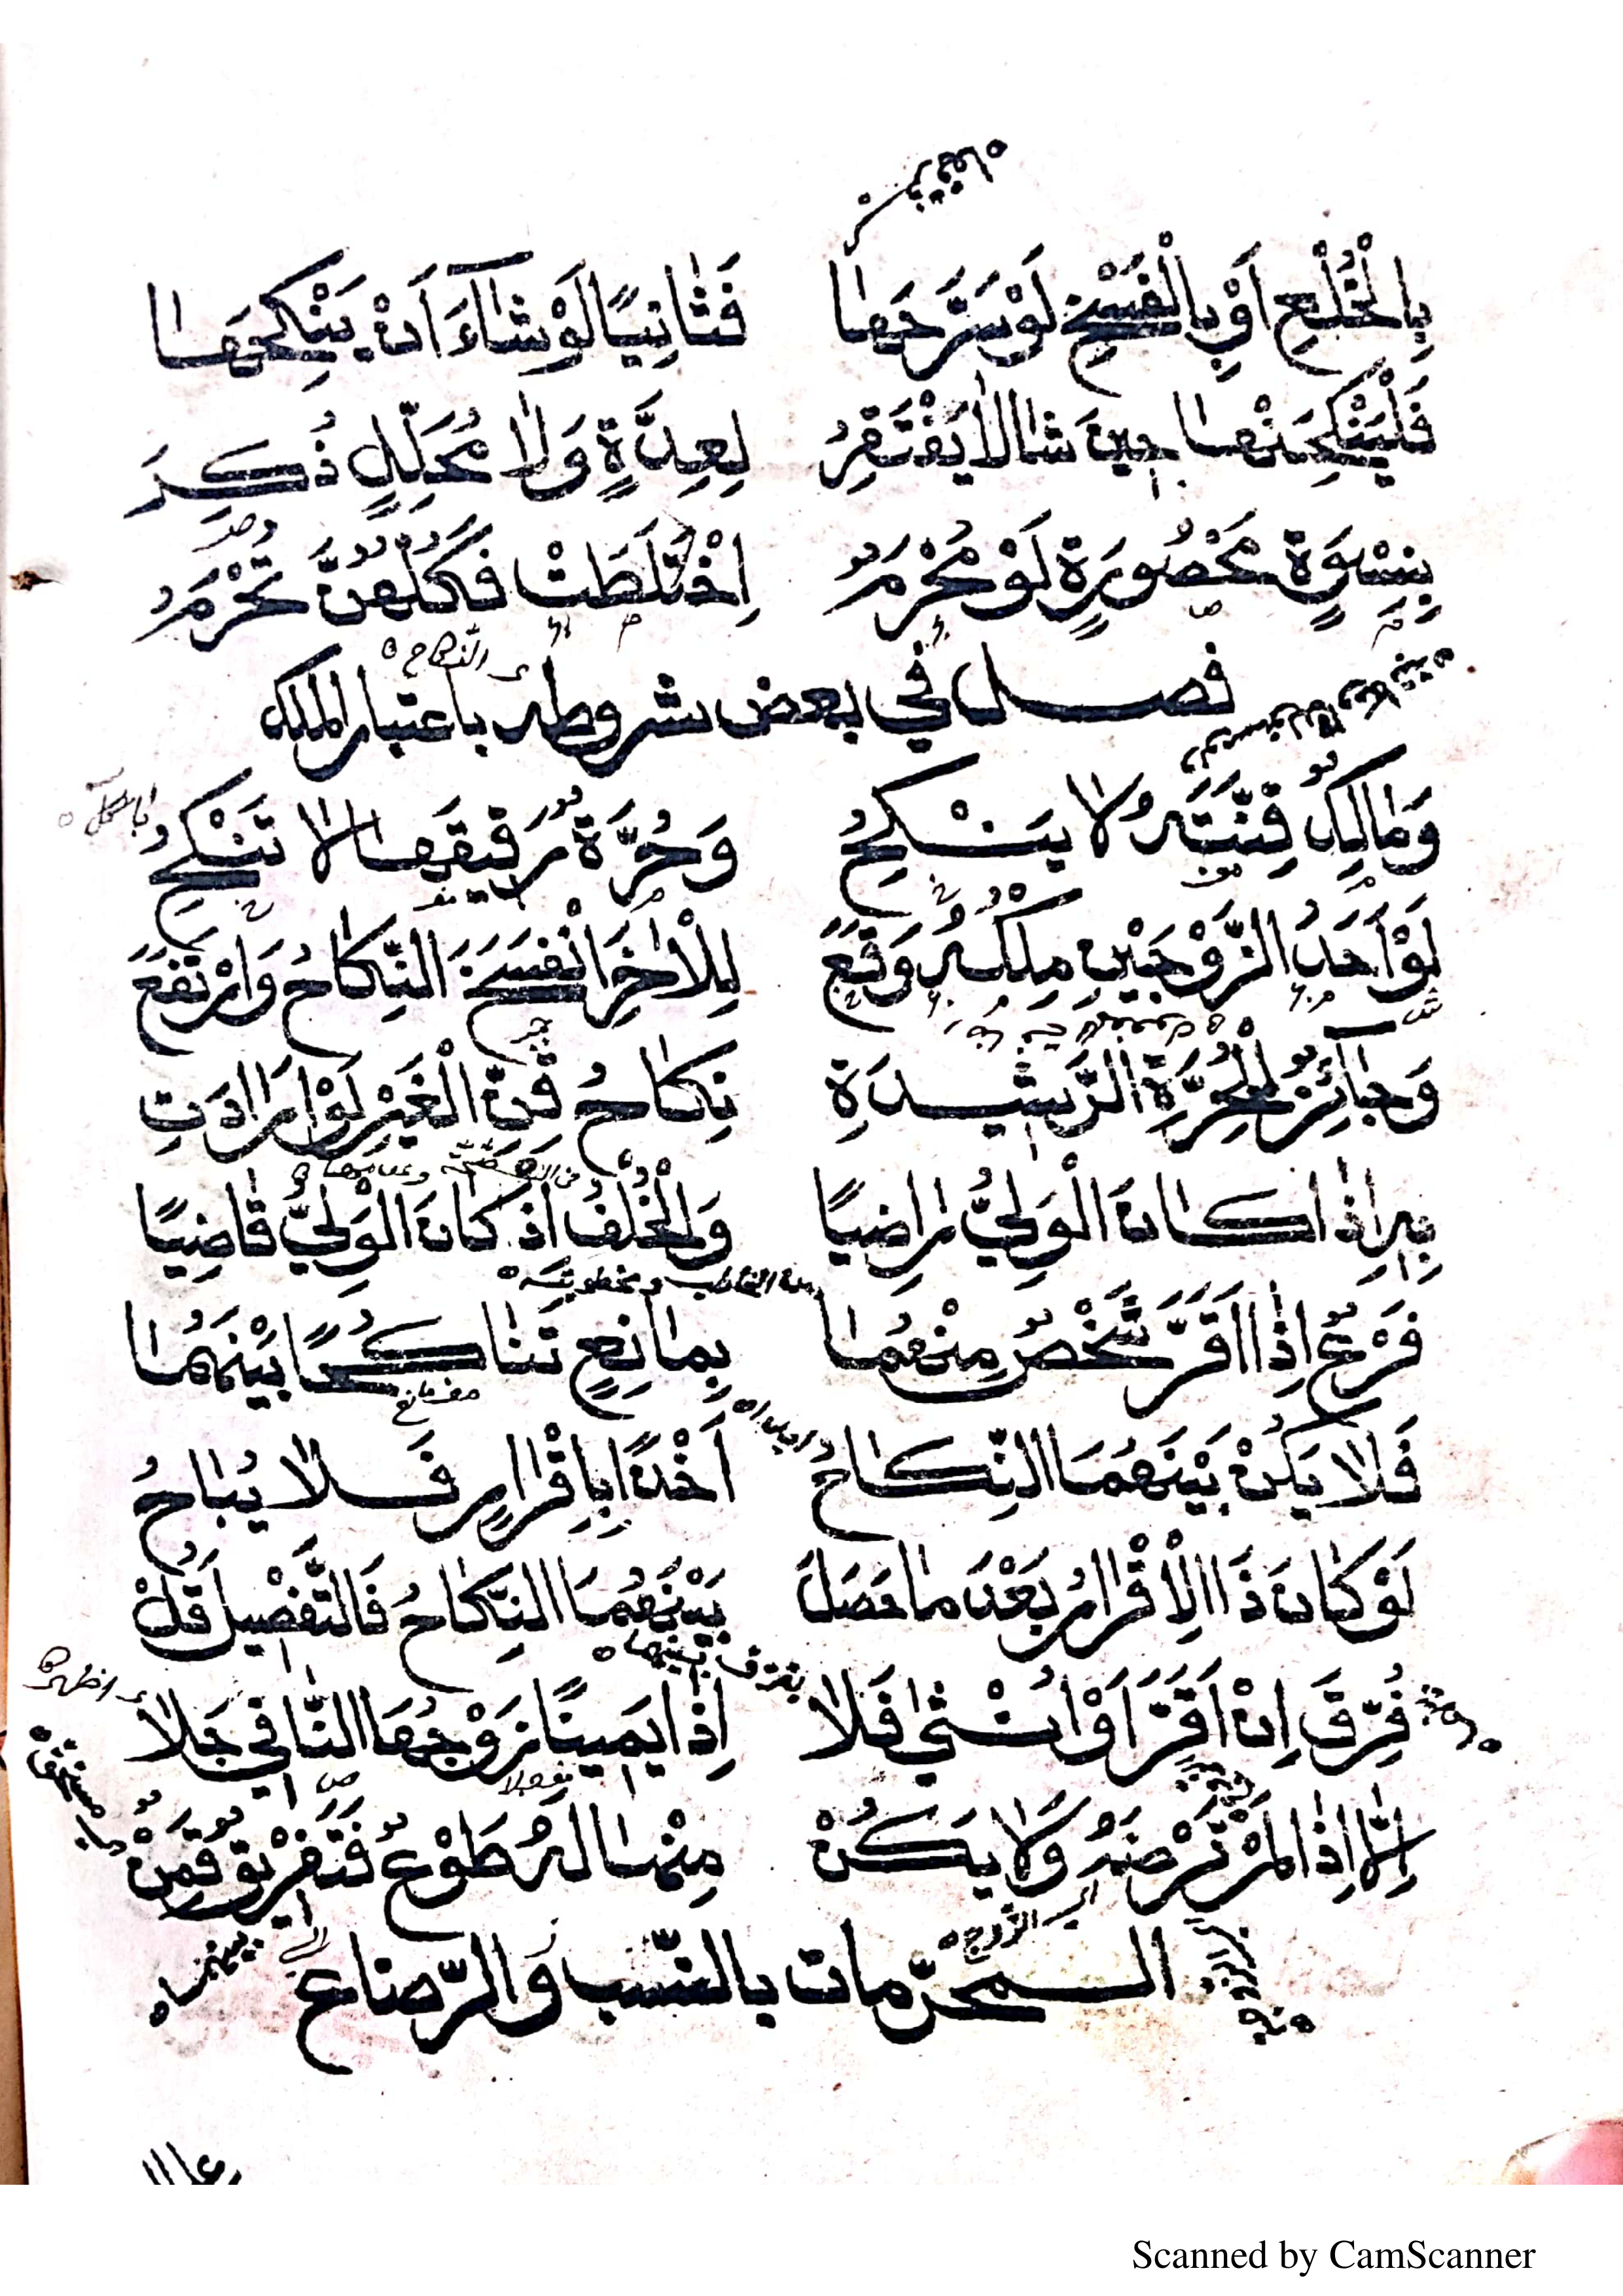 بِالْخُلْعِ اَوْ بِالْفَسْخِ لَوْ سَرَّحَهَا فَثَانِيًا لَوْ شَآءَ اَنْ يَنْكِحَهَا
فَلْيَنْكِحَنْهَا حِينَ شَا لَا يَفْتَقِرُ لِعِدَّةٍ وَلَا مُحَلِّلٍ ذُكِرَ
بِنِسْوَةٍ مَحْصُورَةٍ لَوْ مُحْرَمُ اِخْتَلَطَتْ فَكُلُّهُنَّ تُحْرَمُ
النكاح
فصل في بعض شروطه باعتبار الملك
وَمَالِكٌ قِنَّتَهُ لَا يَنْكِحُ وَحُرَّةٌ رَقِيقَهَا لَا تَنْكِحُ
لَوْ اَحَدُ الزَّوْجَيْنِ مِلْكُهُ وَقَعَ لِلْاٰخِرِ انْفَسَخَ النِّكَاحُ وَارْتَفَعَ
وَجَآئِزٌ لِلْحُرَّةِ الرَّشِيدَةِ نِكَاحُ قِنِّ الْغَيْرِ لَوْ اَرَادَتِ
بِهِ اِذَا كَانَ الْوَلِيُّ رَاضِيًا وَالْخُلْفُ اذْ كَانَ الْوَلِيُّ قَاضِيًا
فَرْعٌ اِذَا اَقَرَّ شَخْصٌ مِنْهُمَا بِمَانِعٍ تَنَاكُحًا بَيْنَهُمَا
فَلَا يَكُنْ بَيْنَهُمَا النِّكَاحُ اَخْذًا بِاِقْرَارٍ فَلَا يُبَاحُ
لَوْ كَانَ ذَا الْاِقْرَارُ بَعْدَ مَا حَصَلَ بَيْنَهُمَا النِّكَاحُ فَالتَّفْصِيلَ قُلْ
فُرِّقَ اِنْ اَقَرَّ اَوْ اُنْثٰى فَلَا اِذَا يَمِينًا زَوْجُهَا النَّافِي جَلَا
اِلَّا اِذَا لَمْ تَرْضَهُ وَلَا يَكُنْ مِنْهَا لَهُ طَوْعٌ فَتَفْرِيقٌ قَمِنْ
اي الزوج
المحرّمات بالنّسب وَالرّضاع
Scanned by CamScanner